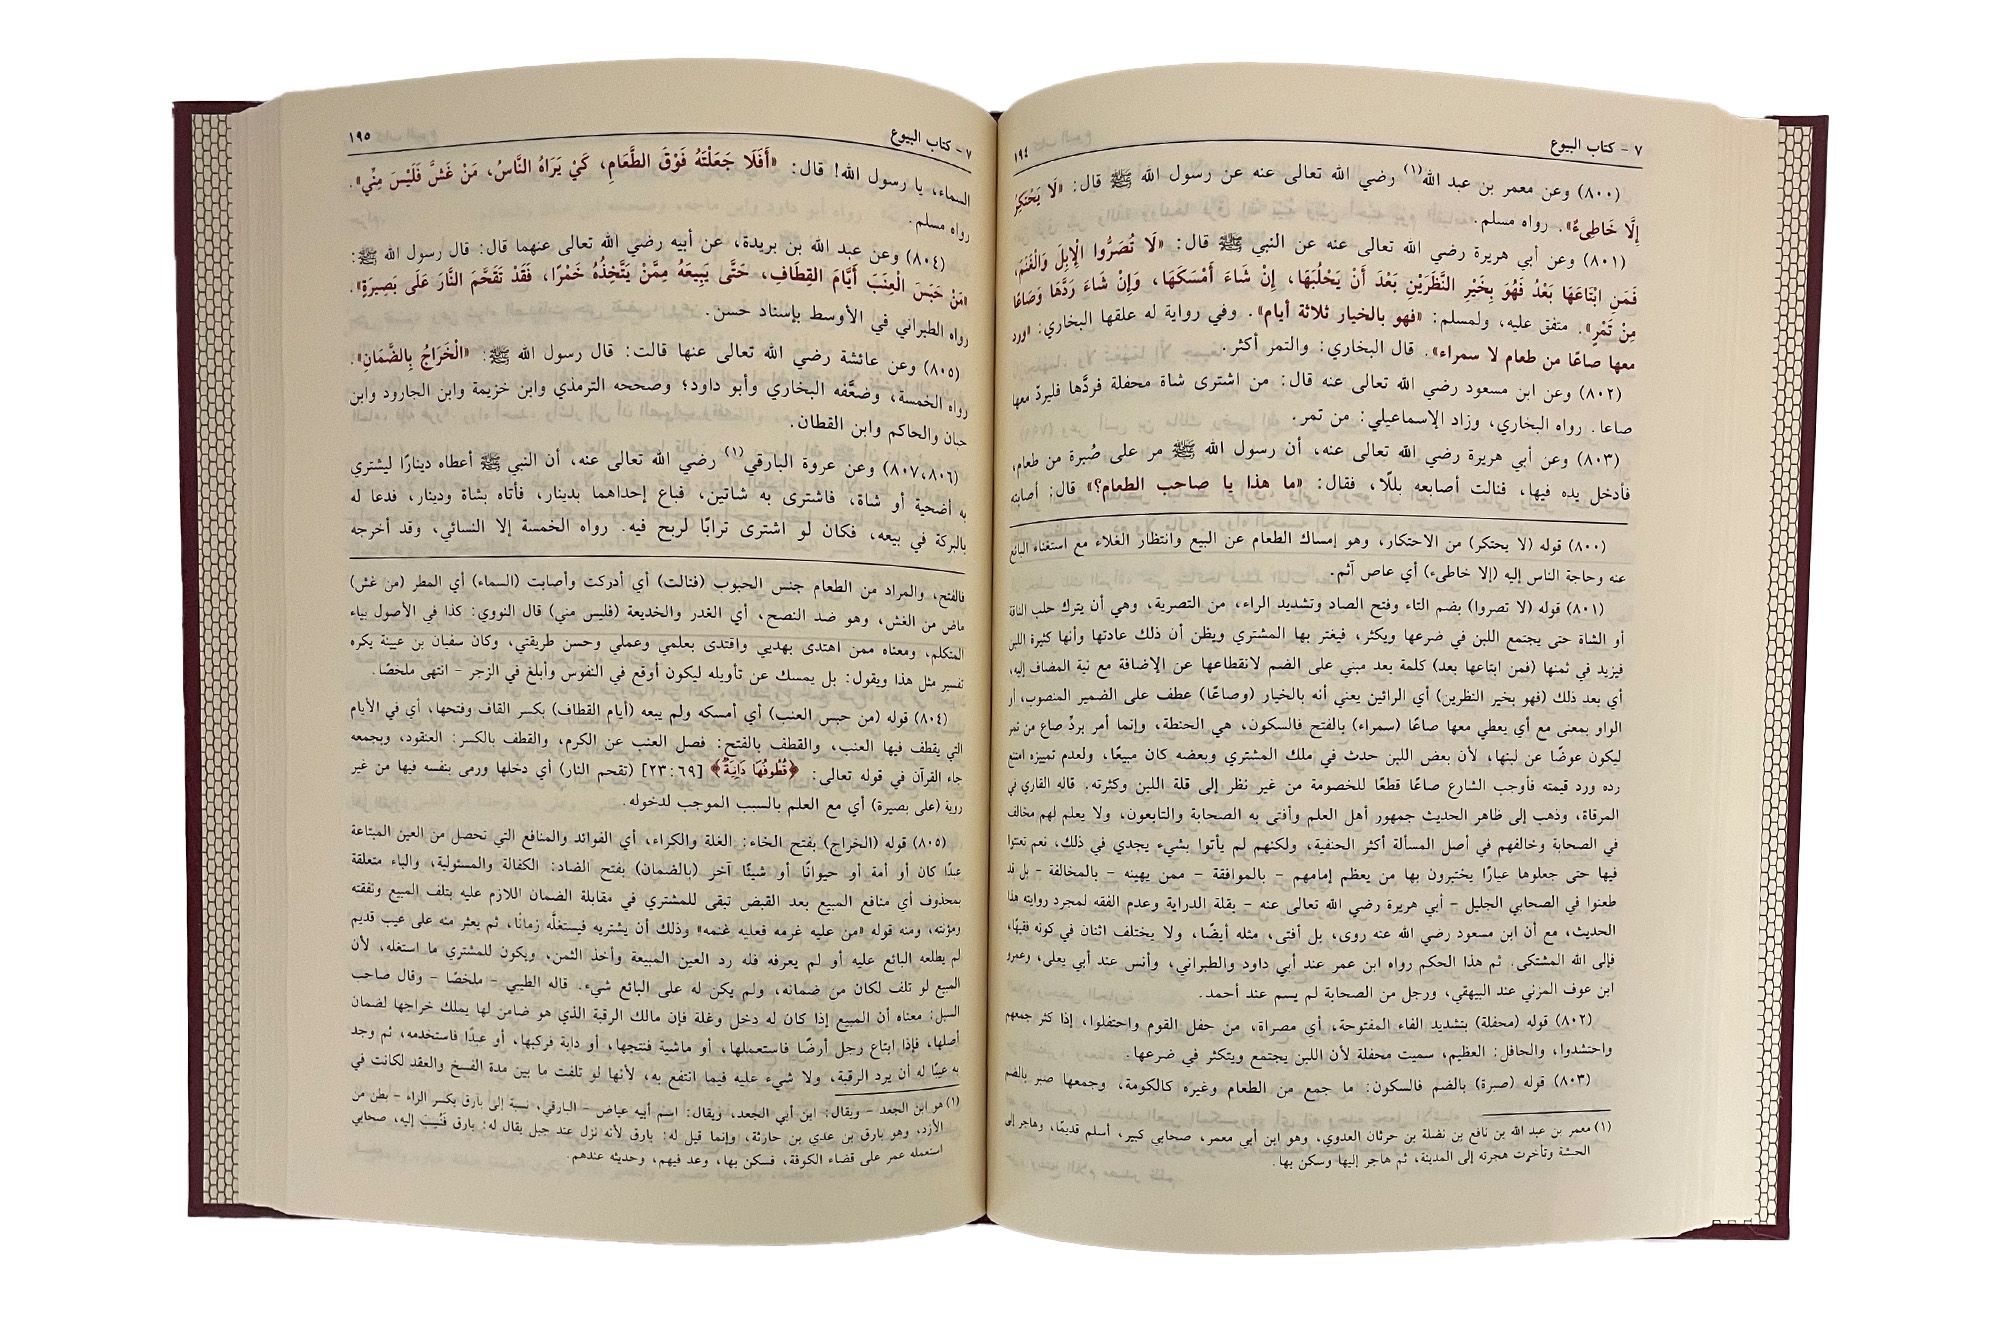 ٧ - كتاب البيوع
١٩٤
(٨٠٠) وعن معمر بن عبد الله(١) رضي الله تعالى عنه عن رسول الله ﷺ قال: «لَا يَحْتَكِرُ
إِلَّا خَاطِىءٌ». رواه مسلم.
(٨٠١) وعن أبي هريرة رضي الله تعالى عنه عن النبي ﷺ قال: «لَا تُصَرُّوا الْإِبِلَ وَالْغَنَمَ،
فَمَنِ ابْتَاعَهَا بَعْدُ فَهُوَ بِخَيْرِ النَّظَرَيْنِ بَعْدَ أَنْ يَحْلُبَهَا، إِنْ شَاءَ أَمْسَكَهَا، وَإِنْ شَاءَ رَدَّهَا وَصَاعًا
مِنْ تَمْرٍ». متفق عليه، ولمسلم: «فهو بالخيار ثلاثة أيام». وفي رواية له علقها البخاري: «ورد
معها صاعًا من طعام لا سمراء». قال البخاري: والتمر أكثر.
(٨٠٢) وعن ابن مسعود رضي الله تعالى عنه قال: من اشترى شاة محفلة فردَّها فليردّ معها
صاعا. رواه البخاري، وزاد الإسماعيلي: من تمر.
(٨٠٣) وعن أبي هريرة رضي الله تعالى عنه، أن رسول الله ﷺ مر على صُبرة من طعام،
فأدخل يده فيها، فنالت أصابعه بللًا، فقال: «ما هذا يا صاحب الطعام؟» قال: أصابته
(٨٠٠) قوله (لا يحتكر) من الاحتكار، وهو إمساك الطعام عن البيع وانتظار الغلاء مع استغناء البائع
عنه وحاجة الناس إليه (إلا خاطىء) أي عاص آثم.
(٨٠١) قوله (لا تصروا) بضم التاء وفتح الصاد وتشديد الراء، من التصرية، وهي أن يترك حلب الناقة
أو الشاة حتى يجتمع اللبن في ضرعها ويكثر، فيغتر بها المشتري ويظن أن ذلك عادتها وأنها كثيرة اللبن
فيزيد في ثمنها (فمن ابتاعها بعد) كلمة بعد مبني على الضم لانقطاعها عن الإضافة مع نية المضاف إليه،
أي بعد ذلك (فهو بخير النظرين) أي الرائين يعني أنه بالخيار (وصاعًا) عطف على الضمير المنصوب، أو
الواو بمعنى مع أي يعطي معها صاعًا (سمراء) بالفتح فالسكون، هي الحنطة، وإنما أمر بردّ صاع من تمر
ليكون عوضًا عن لبنها، لأن بعض اللبن حدث في ملك المشتري وبعضه كان مبيعًا، ولعدم تمييزه امتنع
رده ورد قيمته فأوجب الشارع صاعًا قطعًا للخصومة من غير نظر إلى قلة اللبن وكثرته. قاله القاري في
المرقاة، وذهب إلى ظاهر الحديث جمهور أهل العلم وأفتى به الصحابة والتابعون، ولا يعلم لهم مخالف
في الصحابة وخالفهم في أصل المسألة أكثر الحنفية، ولكنهم لم يأتوا بشيء يجدي في ذلك، نعم تعنتوا
فيها حتى جعلوها عيارًا يختبرون بها من يعظم إمامهم - بالموافقة - ممن يهينه - بالمخالفة - بل قد
طعنوا في الصحابي الجليل - أبي هريرة رضي الله تعالى عنه - بقلة الدراية وعدم الفقه لمجرد روايته هذا
الحديث، مع أن ابن مسعود رضي الله عنه روى، بل أفتى، مثله أيضًا، ولا يختلف اثنان في كونه فقيهًا،
فإلى الله المشتكى. ثم هذا الحكم رواه ابن عمر عند أبي داود والطبراني، وأنس عند أبي يعلى، وعمرو
ابن عوف المزني عند البيهقي، ورجل من الصحابة لم يسم عند أحمد.
(٨٠٢) قوله (محفلة) بتشديد الفاء المفتوحة، أي مصراة، من حفل القوم واحتفلوا، إذا كثر جمعهم
واحتشدوا، والحافل: العظيم، سميت محفلة لأن اللبن يجتمع ويتكثر في ضرعها.
(٨٠٣) قوله (صبرة) بالضم فالسكون: ما جمع من الطعام وغيره كالكومة، وجمعها صبر بالضم
(١) معمر بن عبد الله بن نافع بن نضلة بن حرثان العدوي، وهو ابن أبي معمر، صحابي كبير، أسلم قديمًا، وهاجر إلى
الحبشة وتأخرت هجرته إلى المدينة، ثم هاجر إليها وسكن بها.
٧ - كتاب البيوع
١٩٥
السماء، يا رسول الله! قال: «أَفَلَا جَعَلْتَهُ فَوْقَ الطَّعَامِ، كَيْ يَرَاهُ النَّاسُ، مَنْ غَشَّ فَلَيْسَ مِنِّي».
رواه مسلم.
(٨٠٤) وعن عبد الله بن بريدة، عن أبيه رضي الله تعالى عنهما قال: قال رسول الله ﷺ:
«مَنْ حَبَسَ الْعِنَبَ أَيَّامَ القِطَافِ، حَتَّى يَبِيعَهُ مِمَّنْ يَتَّخِذُهُ خَمْرًا، فَقَدْ تَقَحَّمَ النَّارَ عَلَى بَصِيرَةٍ».
رواه الطبراني في الأوسط بإسناد حسن.
(٨٠٥) وعن عائشة رضي الله تعالى عنها قالت: قال رسول الله ﷺ: «الْخَرَاجُ بِالضَّمَانِ».
رواه الخمسة، وضعَّفه البخاري وأبو داود؛ وصححه الترمذي وابن خزيمة وابن الجارود وابن
حبان والحاكم وابن القطان.
(٨٠٧،٨٠٦) وعن عروة البارقي(١) رضي الله تعالى عنه، أن النبي ﷺ أعطاه دينارًا ليشتري
به أضحية أو شاة، فاشترى به شاتين، فباع إحداهما بدينار، فأتاه بشاة ودينار، فدعا له
بالبركة في بيعه، فكان لو اشترى ترابًا لربح فيه. رواه الخمسة إلا النسائي، وقد أخرجه
فالفتح، والمراد من الطعام جنس الحبوب (فنالت) أي أدركت وأصابت (السماء) أي المطر (من غش)
ماض من الغش، وهو ضد النصح، أي الغدر والخديعة (فليس مني) قال النووي: كذا في الأصول بياء
المتكلم، ومعناه ممن اهتدى بهديي واقتدى بعلمي وعملي وحسن طريقتي، وكان سفيان بن عيينة يكره
تفسير مثل هذا ويقول: بل يمسك عن تأويله ليكون أوقع في النفوس وأبلغ في الزجر - انتهى ملخصًا.
(٨٠٤) قوله (من حبس العنب) أي أمسكه ولم يبعه (أيام القطاف) بكسر القاف وفتحها، أي في الأيام
التي يقطف فيها العنب، والقطف بالفتح: فصل العنب عن الكرم، والقطف بالكسر: العنقود، وبجمعه
جاء القرآن في قوله تعالى: ﴿قُطُوفُهَا دَانِيَةٌ﴾ [٢٣:٦٩] (تقحم النار) أي دخلها ورمى بنفسه فيها من غير
روية (على بصيرة) أي مع العلم بالسبب الموجب لدخوله.
(٨٠٥) قوله (الخراج) بفتح الخاء: الغلة والكراء، أي الفوائد والمنافع التي تحصل من العين المبتاعة
عبدًا كان أو أمة أو حيوانًا أو شيئًا آخر (بالضمان) بفتح الضاد: الكفالة والمسئولية، والباء متعلقة
بمحذوف أي منافع المبيع بعد القبض تبقى للمشتري في مقابلة الضمان اللازم عليه بتلف المبيع ونفقته
ومؤنته، ومنه قوله «من عليه غرمه فعليه غنمه» وذلك أن يشتريه فيستغلَّه زمانًا، ثم يعثر منه على عيب قديم
لم يطلعه البائع عليه أو لم يعرفه فله رد العين المبيعة وأخذ الثمن، ويكون للمشتري ما استغله، لأن
المبيع لو تلف لكان من ضمانه، ولم يكن له على البائع شيء. قاله الطيبي - ملخصًا - وقال صاحب
السبل: معناه أن المبيع إذا كان له دخل وغلة فإن مالك الرقبة الذي هو ضامن لها يملك خراجها لضمان
أصلها، فإذا ابتاع رجل أرضًا فاستعملها، أو ماشية فنتجها، أو دابة فركبها، أو عبدًا فاستخدمه، ثم وجد
به عيبًا له أن يرد الرقبة، ولا شيء عليه فيما انتفع به، لأنها لو تلفت ما بين مدة الفسخ والعقد لكانت في
(١) هو ابن الجعد - ويقال: ابن أبي الجعد، ويقال: اسم أبيه عياض - البارقي، نسبة إلى بارق بكسر الراء - بطن من
الأزد، وهو بارق بن عدي بن حارثة، وإنما قيل له: بارق لأنه نزل عند جبل يقال له: بارق فنُسِبَ إليه، صحابي
استعمله عمر على قضاء الكوفة، فسكن بها، وعد فيهم، وحديثه عندهم.